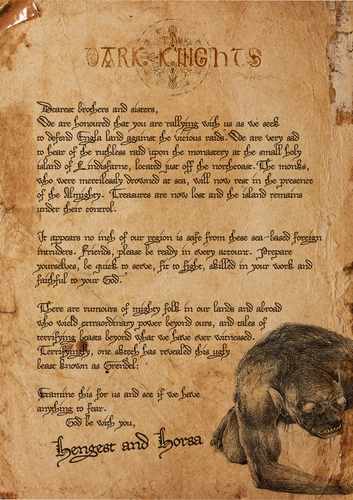 THE
DARK KNIGHTS
Dearest brothers and sisters,
We are honoured that you are rallying with us as we seek
to defend Engla land against the vicious raids. We are very sad
to hear of the ruthless raid upon the monastery at the small holy
island of Lindisfarne, located just off the northcoast. The monks,
who were mercilessly drowned at sea, will now rest in the presence
of the Almighty. Treasures are now lost and the island remains
under their control.
It appears no inch of our region is safe from these sea-based foreign
intruders. Friends, please be ready in every account. Prepare
yourselves, be quick to serve, fit to fight, skilled in your work and
faithful to your God.
There are rumours of mighty folk in our lands and abroad
who wield extraordinary power beyond ours, and tales of
terrifying beasts beyond what we have ever witnessed.
Terrifyingly, one sketch has revealed this ugly
beast known as Grendel:
Examine this for us and see if we have
anything to fear.
God be with you,
Hengest and Horsa